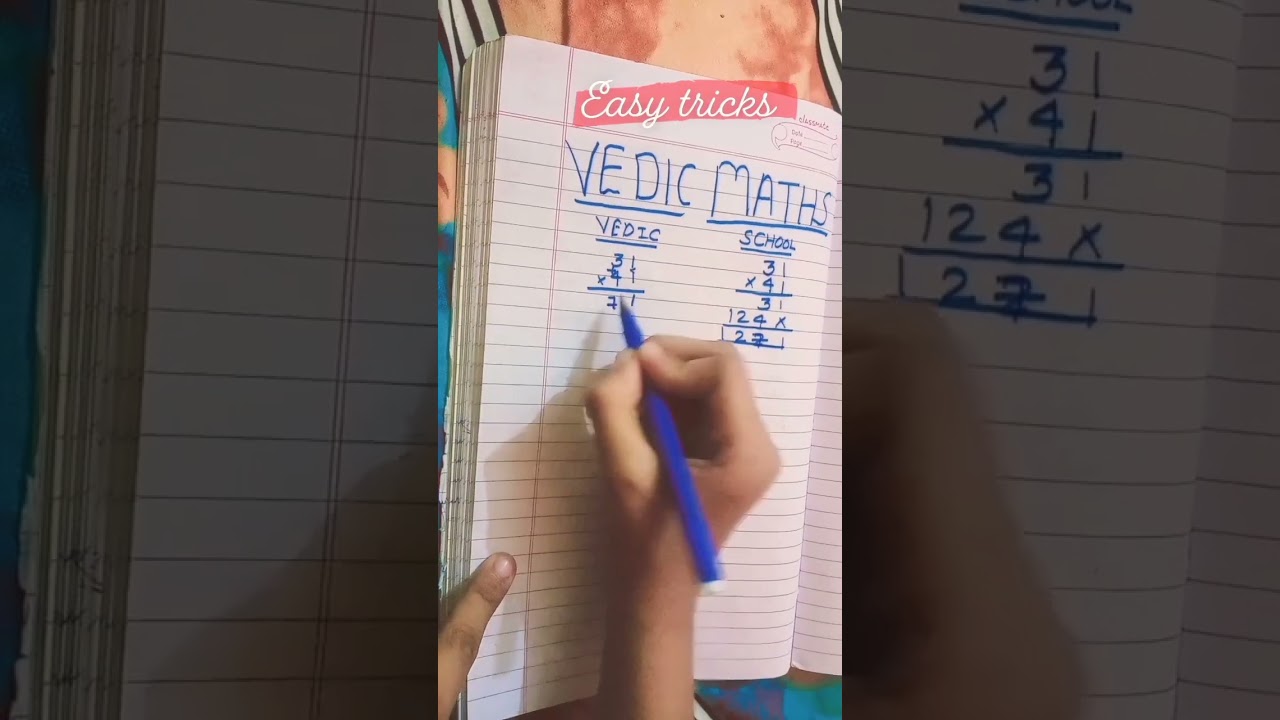 Easy tricks
classmate
Date
Page
VEDIC MATHS
VEDIC
31
× 41
71
SCHOOL
31
× 41
31
124 ×
1271